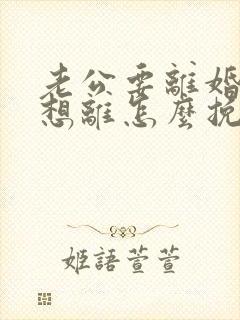 老公要離婚
想離怎麼挽
姬語萱萱